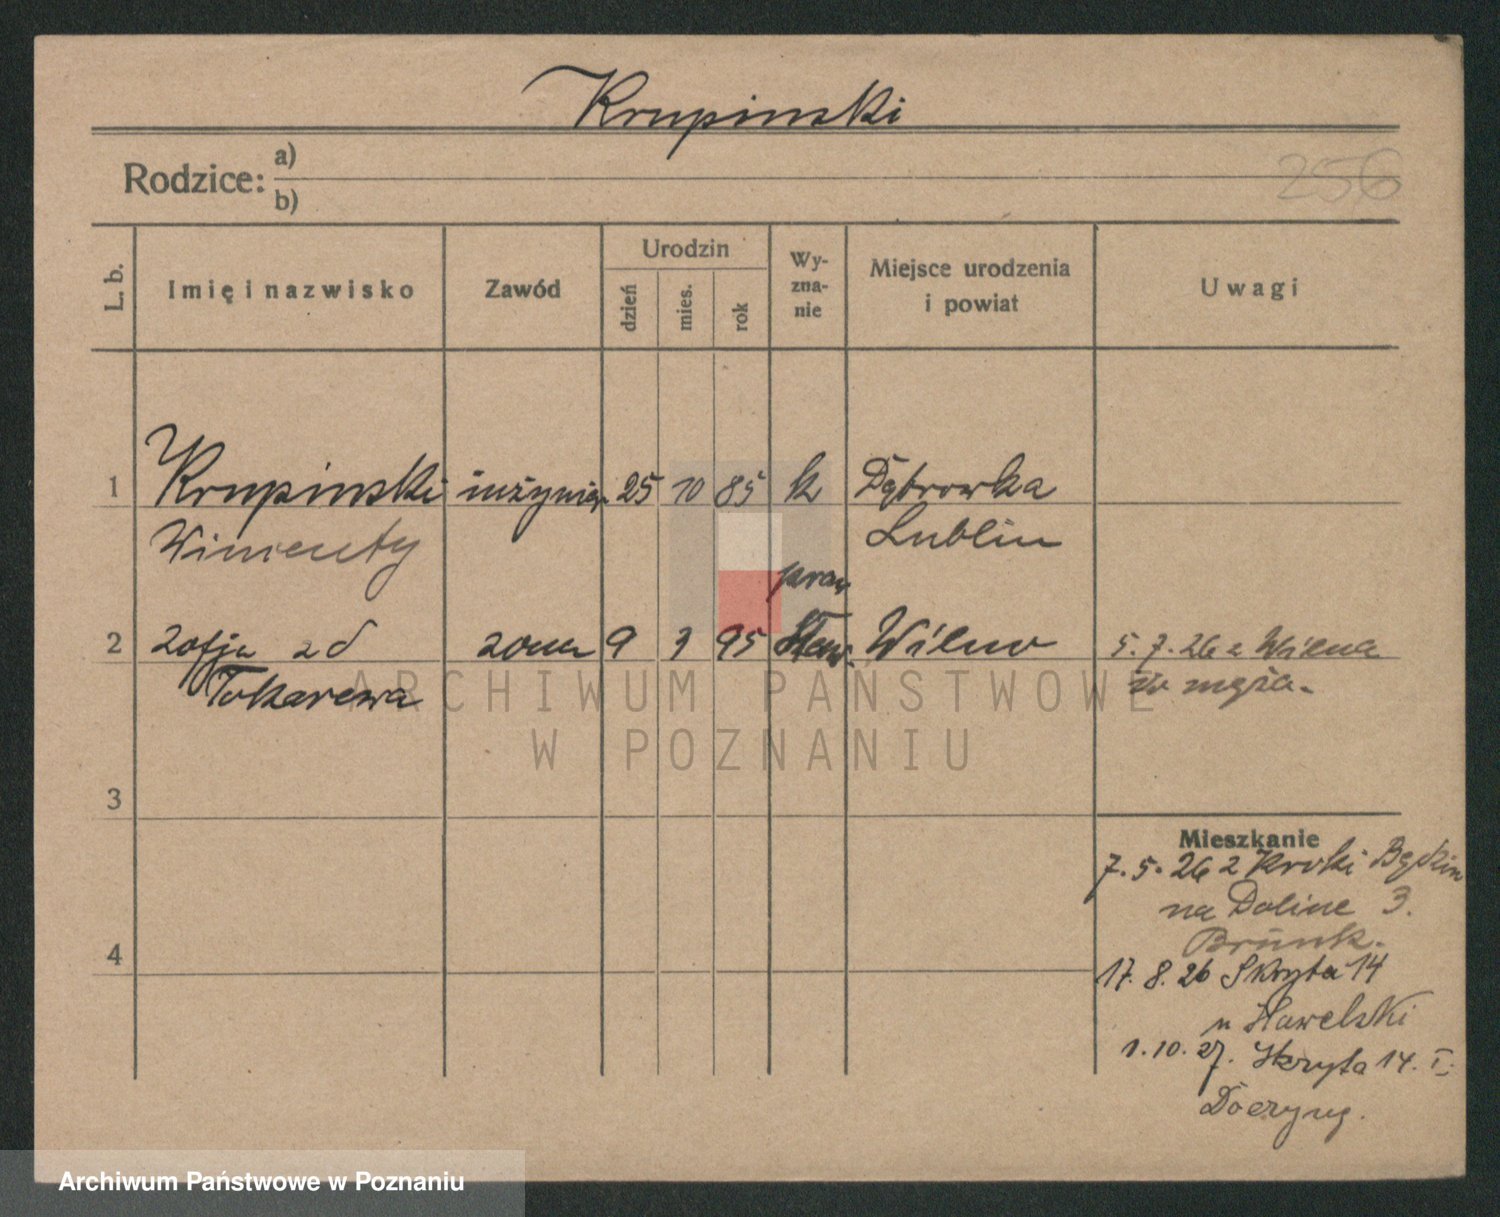 Krupinski
256
Rodzice: a)
b)
L. b.
Imię i nazwisko
Zawód
Urodzin
dzień
mies.
rok
Wy-
zna-
nie
Miejsce urodzenia
i powiat
Uwagi
1 Krupinski inżynier 25 10 85 k Dąbrowka
Wincenty Lublin
praw
2 Zofja zd żona 9 3 95 sław. Wilno 5.7.26 z Wilna
Tokarewa do męża.
ARCHIWUM PAŃSTWOWE
W POZNANIU
3
Mieszkanie
7.5.26 z Będzin
na Doline 3.
4
17.8.26 Skryta 14
u Hawelski
1.10.27. Skryta 14. I.
Archiwum Państwowe w Poznaniu